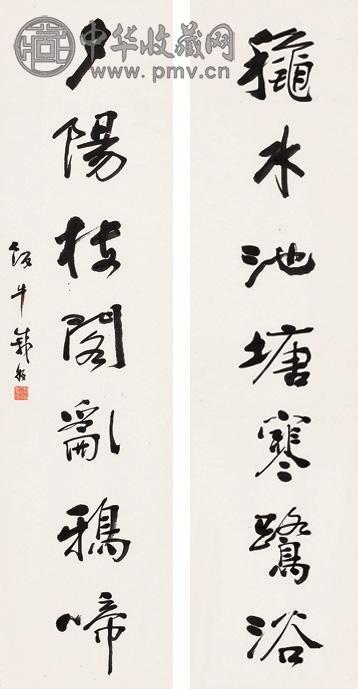 中华收藏网
www.pmv.cn
穐水池塘寒鷺浴
夕陽枝閣亂鴉啼
飯牛